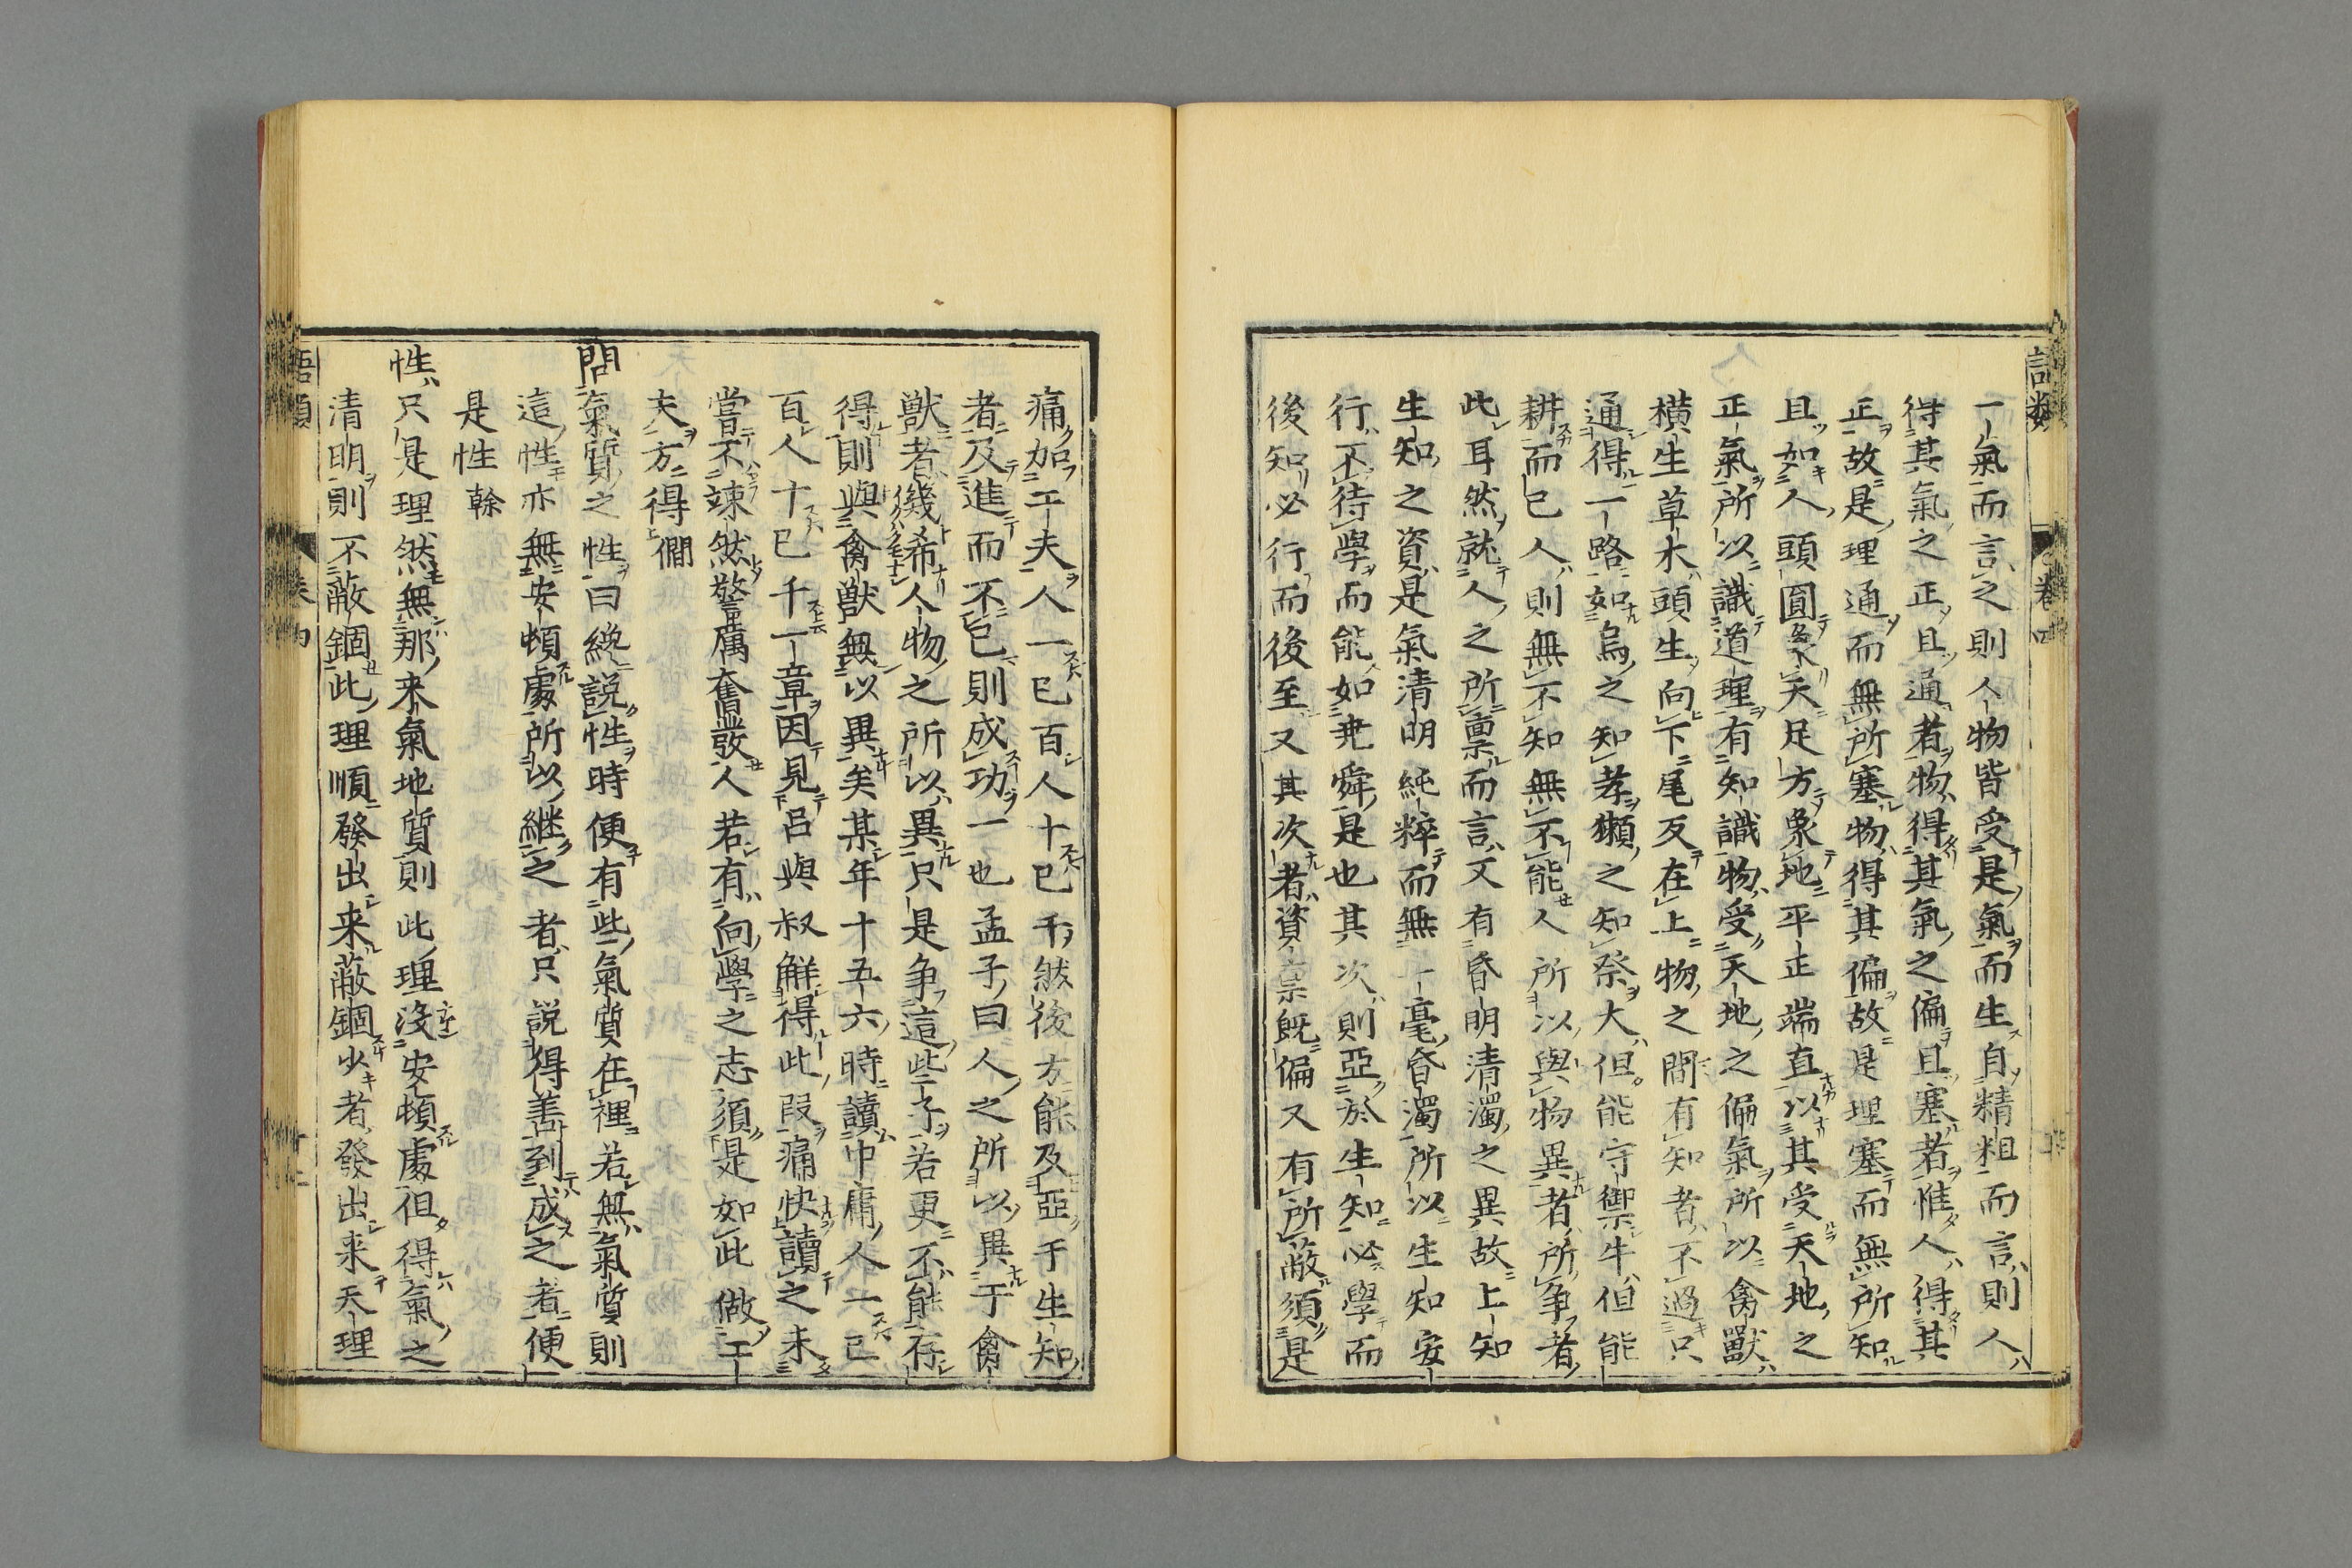 語類 卷四
一氣而言之則人物皆受是氣而生自精粗而言則人得其
得其氣之正且通者物得其氣之偏且塞者惟人得其
正故是理通而無所塞物得其偏故是理塞而無所知
且如人頭圓象天足方象地平正端直以其受天地之
正氣所以識道理有知識物受天地之偏氣所以禽獸
橫生草木頭生向下尾反在上物之間有知者不過只
通得一路如烏之知孝獺之知祭犬但能守禦牛但能
耕而已人則無不知無不能人所以與物異者所爭者
此耳然就人之所稟而言又有昏明清濁之異故上知
生知之資是氣清明純粹而無一毫昏濁所以生知安
行不待學而能如堯舜是也其次則亞於生知必學而
後知必行而後至又其次者資稟既偏又有所蔽須是
痛加工夫人一己百人十己千然後方能及亞于生知
者及進而不已則成功一也孟子曰人之所以異于禽
獸者幾希人物之所以異只是爭這些子若更不能存
得則與禽獸無以異矣某年十五六時讀中庸人一己
百人十己千一章因見呂與叔解得此段痛快讀之未
嘗不竦然警厲奮發人若有向學之志須是如此做工
夫方得 僩
問氣質之性曰纔說性時便有些氣質在裡若無氣質則
這性亦無安頓處所以繼之者只說得善到成之者便
是性 榦
性只是理然無那來氣地質則此理沒安頓處但得氣之
清明則不蔽錮此理順發出來蔽錮少者發出來天理
語類